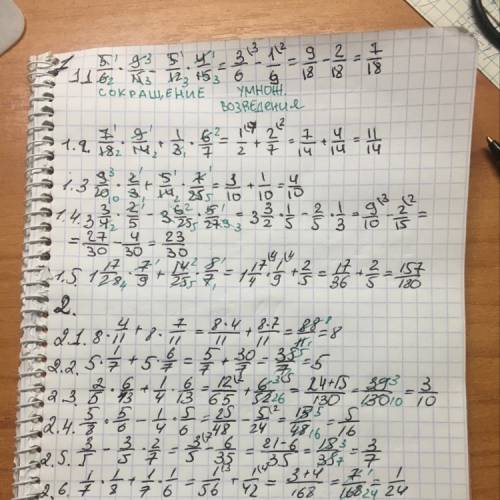 1
1.1 5/6 · 9/15 - 5/12 · 4/15 = 3/6 - 1/9 = 9/18 - 2/18 = 7/18
СОКРАЩЕНИЕ УМНОЖ.
ВОЗВЕДЕНИЯ
1.2. 7/18 · 9/14 + 1/3 · 6/7 = 1/2 + 2/7 = 7/14 + 4/14 = 11/14
1.3 9/20 · 2/3 + 5/14 · 7/25 = 3/10 + 1/10 = 4/10
1.4. 3 3/4 · 2/5 - 3 6/25 · 5/27 = 3 3/2 · 1/5 - 2/5 · 1/3 = 9/10 - 2/15 =
= 27/30 - 4/30 = 23/30
1.5. 1 17/28 · 7/9 + 14/25 · 8/7 = 1 17/4 · 1/9 + 2/5 = 17/36 + 2/5 = 157/180
2.
2.1. 8 · 4/11 + 8 · 7/11 = 8·4/11 + 8·7/11 = 88/11 = 8
2.2. 5 · 1/7 + 5 · 6/7 = 5/7 + 30/7 = 35/7 = 5
2.3. 2/5 · 6/13 + 1/4 · 6/13 = 12/65 + 6/52 = 24+15/130 = 39/130 = 3/10
2.4. 5/8 · 5/6 - 1/4 · 5/6 = 25/48 - 5/24 = 15/48 = 5/16
2.5. 3/5 - 3/5 · 2/7 = 3/5 - 6/35 = 21-6/35 = 15/35 = 3/7
2.6. 1/7 · 1/8 + 1/7 · 1/6 = 1/56 + 1/42 = 3+4/168 = 7/168 = 1/24